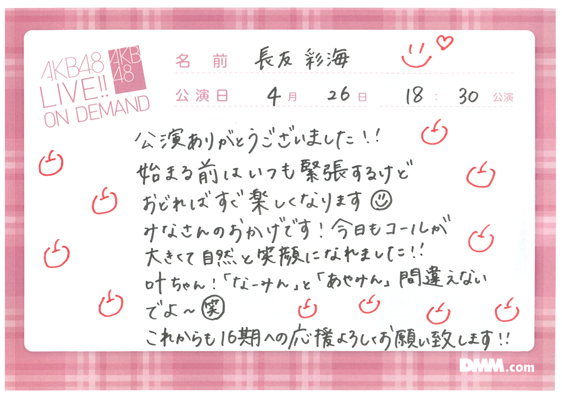 AKB48
LIVE!!
ON DEMAND
AKB
48
名前 長友 彩海
公演日 4月 26日 18:30公演
公演ありがとうございました!!
始まる前はいつも緊張するけど
おどればすぐ楽しくなります
みなさんのおかげです!今日もコールが
大きくて自然と笑顔になれました!!
叶ちゃん!「なーみん」と「あやみん」間違えない
でよ〜笑
これからも16期への応援よろしくお願い致します!!
DMM.com